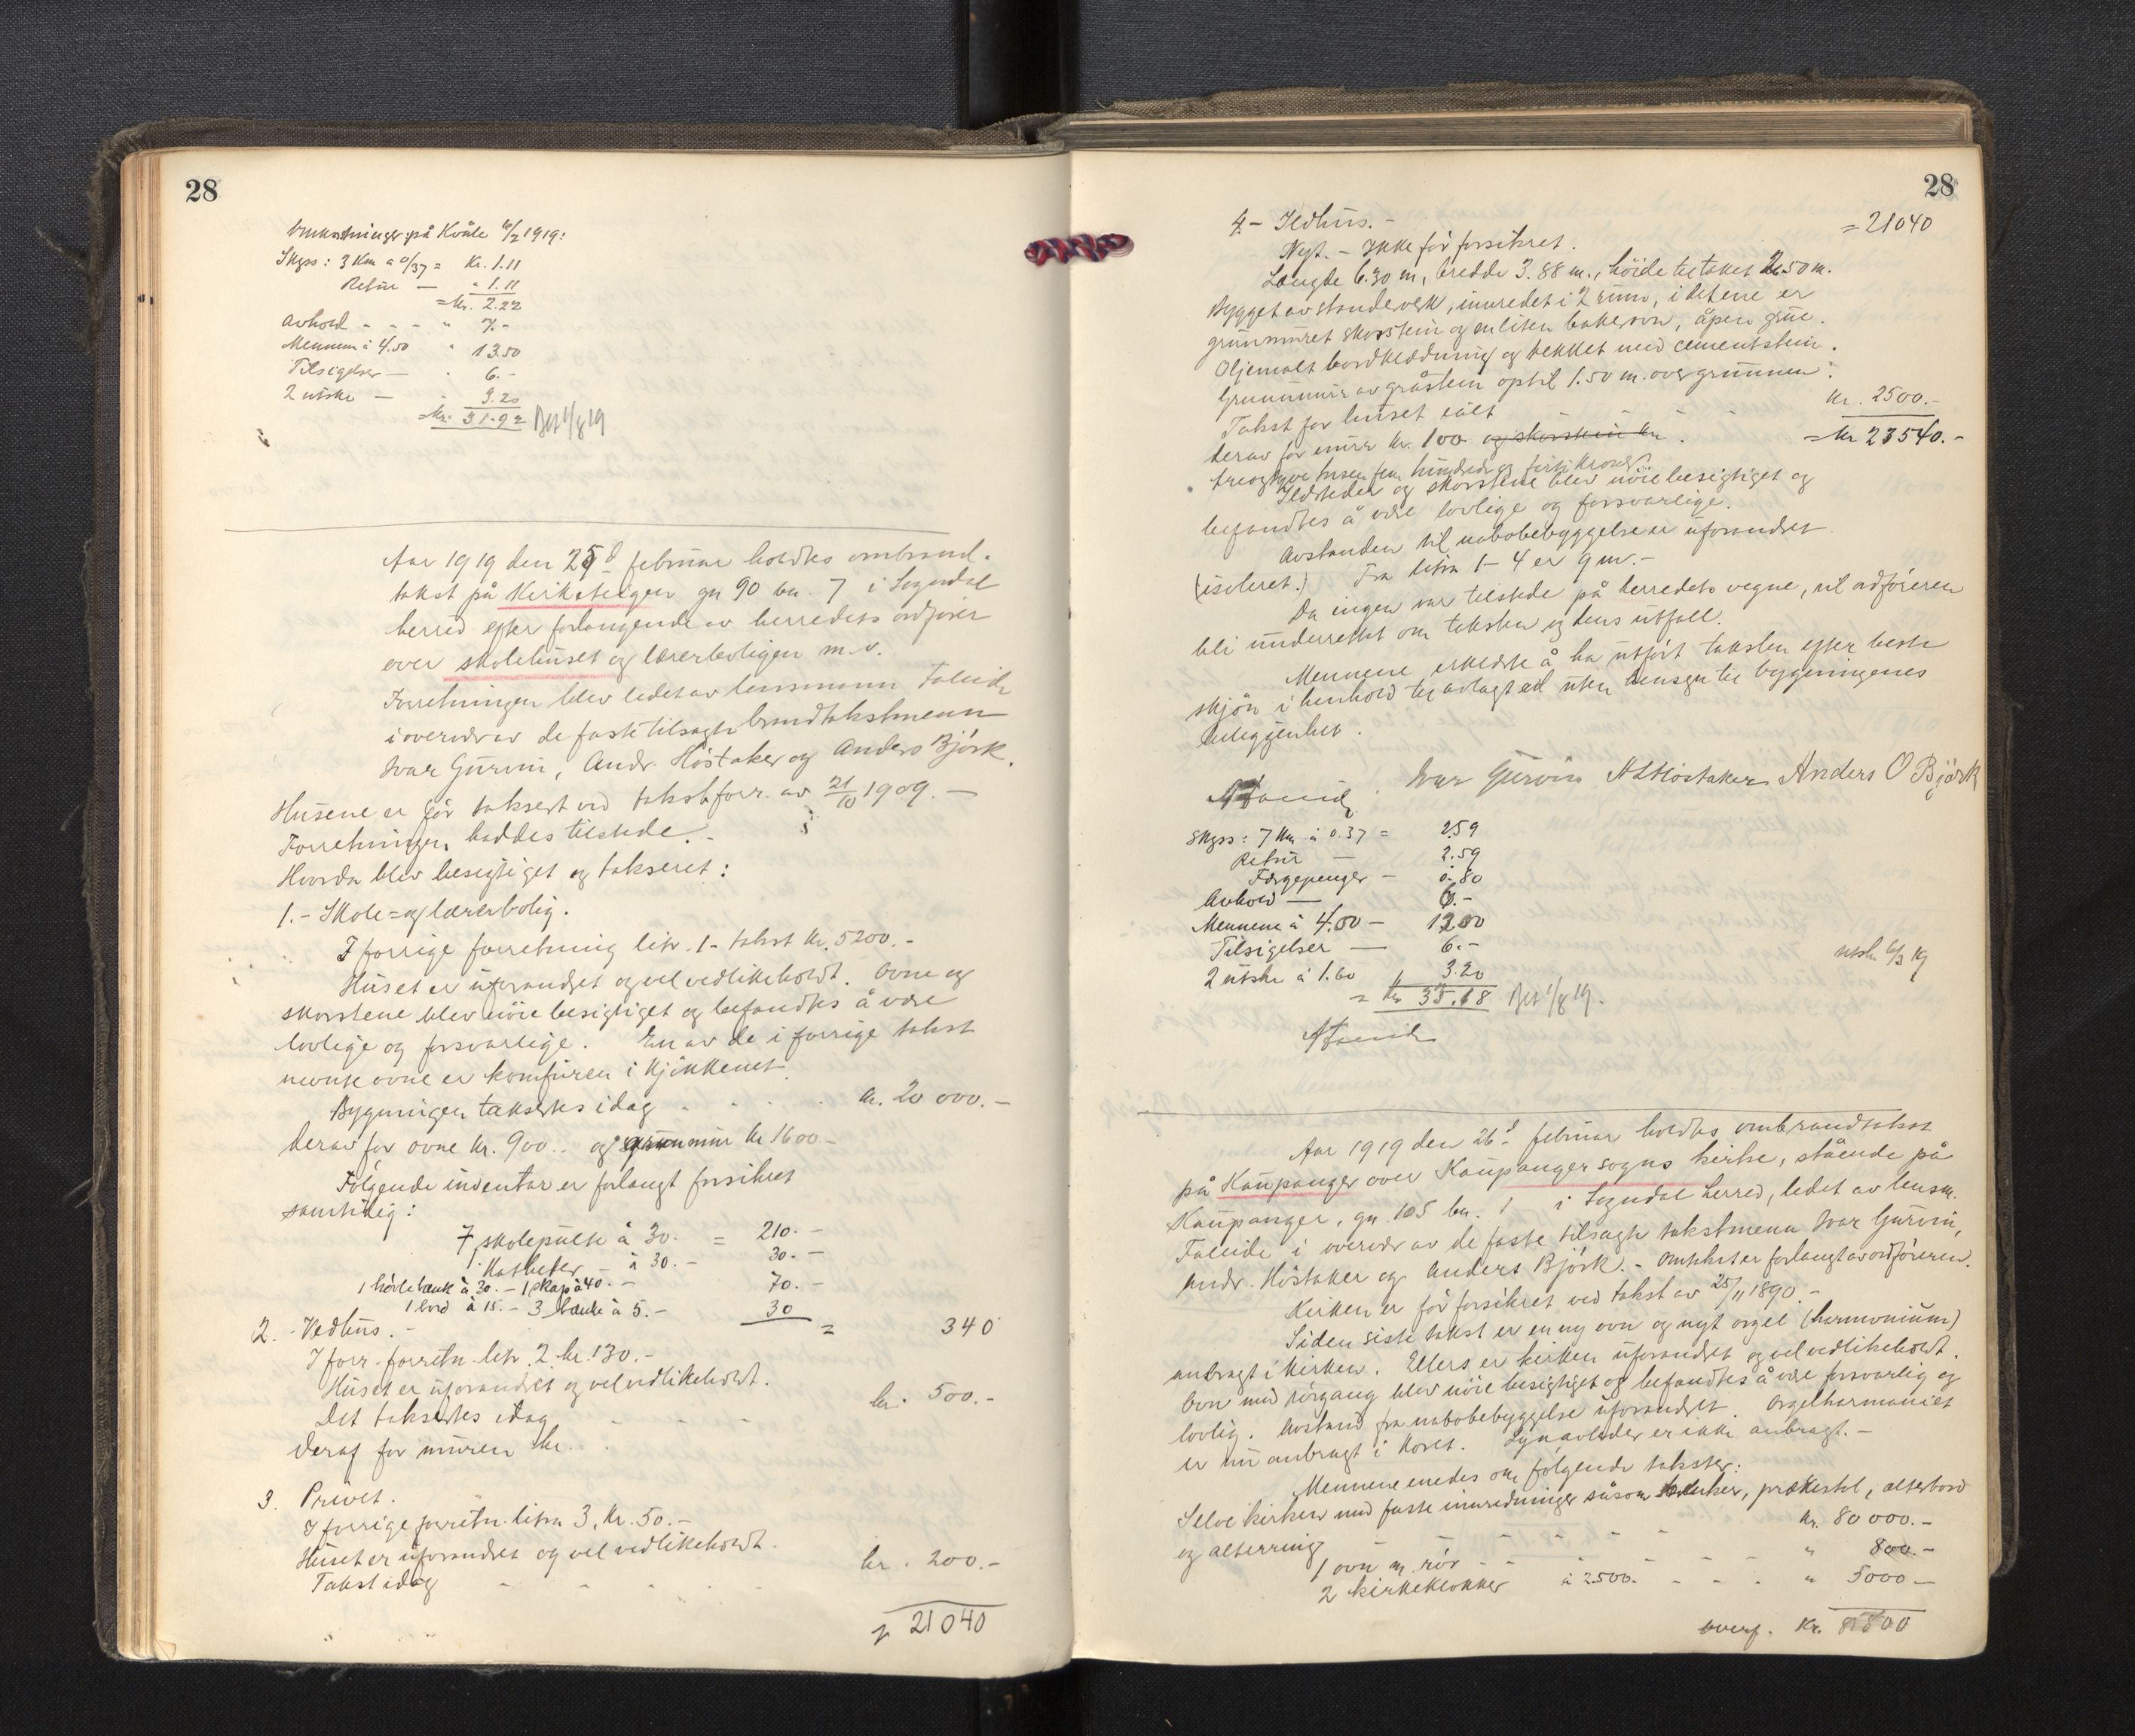 28
Omkostninger på Kvåle 6/2 1919:
Skyss: 3 Km a 0/37 = Kr. 1.11
Retur — " 1.11
= Kr. 2.22
Avhold - - - " 7.-
Mennene à 4.50 " 13.50
Tilsigelser — " 6.-
2 utskr. — " 3.20
= Kr. 31.92 Bet 1/8 19
Aar 1919 den 25d februar holdtes ombrand-
takst på Kirketeigen gn 90 bn. 7 i Sogndal
herred efter forlangende av herredets ordfører
over skolehuset og lærerboligen m.v.
Forretningen blev ledet av lensmann Faleide
i overvær av de faste tilsagte brandtakstmenn
Ivar Gurvin, Andr. Höstaker og Anders Björk.
Husene er för taksert ved takstforr. av 21/10 1909. —
Forretningen haddes tilstede.
Hvorda blev besigtiget og takseret:
1.- Skole= og lærerbolig.
I forrige forretning litr. 1- takst Kr. 5200.-
Huset er uforandret og vel vedlikeholdt. Ovne og
skorstene blev nöie besigtiget og befandtes å være
lovlige og forsvarlige. En av de i forrige takst
nevnte ovne er komfuren i kjökkenet.
Bygningen taksertes idag - - - - kr. 20 000.—
derav for ovne kr. 900.. og grunnmur kr 1600-
Fölgende inventar er forlangt forsikret
samtidig:
7 skolepulte à 30. = 210.—
1 Katheter - à 30.— 30.—
1 hövlebænk à 30.— 1 skap à 40.— 70.—
1 bord à 15.- 3 bænke à 5.— 30
= 340
2. Vedhus.-
I forr. forretn. litr. 2 kr. 130.-
Huset er uforandret og vel vedlikeholdt.
Det taksertes idag - - - kr. 500.-
Deraf for muren kr. . .
3. Privet.
I forrige forretn. litra 3, Kr. 50.-
Huset er uforandret og vel vedlikeholdt.
Takst idag - - - - - kr. 200.-
21040
28
4.- Ildhus.- = 21040
Nyt.- Ikke för forsikret.
Længde 6.30 m, bredde 3.88 m., höide til taket 2.50 m.
Bygget av standervek, innredet i 2 rum, i det ene er
grunnmuret skorstein og en liten bakerovn, åpen grue.
Oljemalt bordklædning og tekket med cementstein.
Grunnmur av gråstein optil 1.50 m. over grunnen.
Takst for huset ialt - - - - kr. 2500.-
derav for mur kr. 100. og skorstein kr. = Kr 23540.-
treogtyve tusen fem hundrede og firti kroner.
Ildsteder og skorstene blev nöie besigtiget og
befandtes å være lovlige og forsvarlige.
Avstanden til nabobebyggelse er uforandret
(isoleret.) Fra litra 1-4 er 9 m.-
Da ingen var tilstede på herredets vegne, vil ordföreren
bli underrettet om taksten og dens utfall.
Mennene erklærte å ha utfört taksten efter beste
skjön i henhold til avlagt ed uten hensyn til bygningenes
beliggenhet.
AFaleide Ivar Gurvin A L Höstaker Anders O Björk
Skyss: 7 Km à 0.37 = 2.59
Retur — 2.59
Færgepenger — 0.80
Avhold — 6.-
Mennene à 4.00 — 12.00
Tilsigelser — 6.-
2 utskr à 1.60 3.20
= Kr 35.18 Bet 1/8 19.
utskr 6/3 19
AFaleide
Aar 1919 den 26d februar holdtes ombrandtakst
på Kaupanger over Kaupanger sogns kirke, stående på
Kaupanger, gn. 105 bn. 1 i Sogndal herred, ledet av lensm.
Faleide i overvær av de faste tilsagte takstmenn Ivar Gurvin,
Andr. Höstaker og Anders Björk.- Omtakst er forlangt av ordföreren.
Kirken er för forsikret ved takst av 25/11 1890.-
Siden siste takst er en ny ovn og nyt orgel (harmonium)
anbragt i kirken. Ellers er kirken uforandret og vel vedlikeholdt.
Ovn med rörgang blev nöie besigtiget og befandtes å være forsvarlig og
lovlig. Avstand fra nabobebyggelse uforandret. Orgelharmoniet
er nu anbragt i koret. Lynavleder er ikke anbragt.-
Mennene enedes om fölgende takster:
Selve kirken med faste innredninger såsom bænker, prækestol, alterbord
og alterring - - - - Kr. 80 000.-
1 ovn m. rör - - - - " 800.-
2 kirkeklokker à 2500.- - - - " 5000 —
overf. Kr. 85800